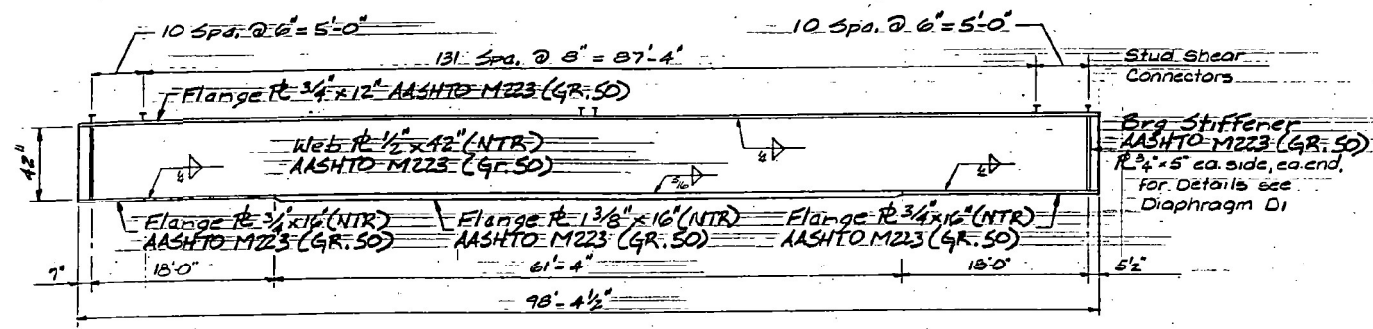 10 Spa. @ 6" = 5'-0"
10 Spa. @ 6" = 5'-0"
131 Spa. @ 8" = 87'-4"
Stud Shear
Connectors
Flange PL 3/4" x 12" AASHTO M223 (GR. 50)
42"
Web PL 1/2" x 42" (NTR)
AASHTO M223 (Gr. 50)
Brg Stiffener
AASHTO M223 (GR. 50)
PL 3/4" x 5" ea. side, ea. end.
For Details see
Diaphragm D1
1/4
1/4
5/16
1/4
Flange PL 3/4" x 16" (NTR)
AASHTO M223 (GR. 50)
Flange PL 1 3/8" x 16" (NTR)
AASHTO M223 (GR. 50)
Flange PL 3/4" x 16" (NTR)
AASHTO M223 (GR. 50)
7"
18'-0"
61'-4"
18'-0"
5 1/2"
98'-4 1/2"